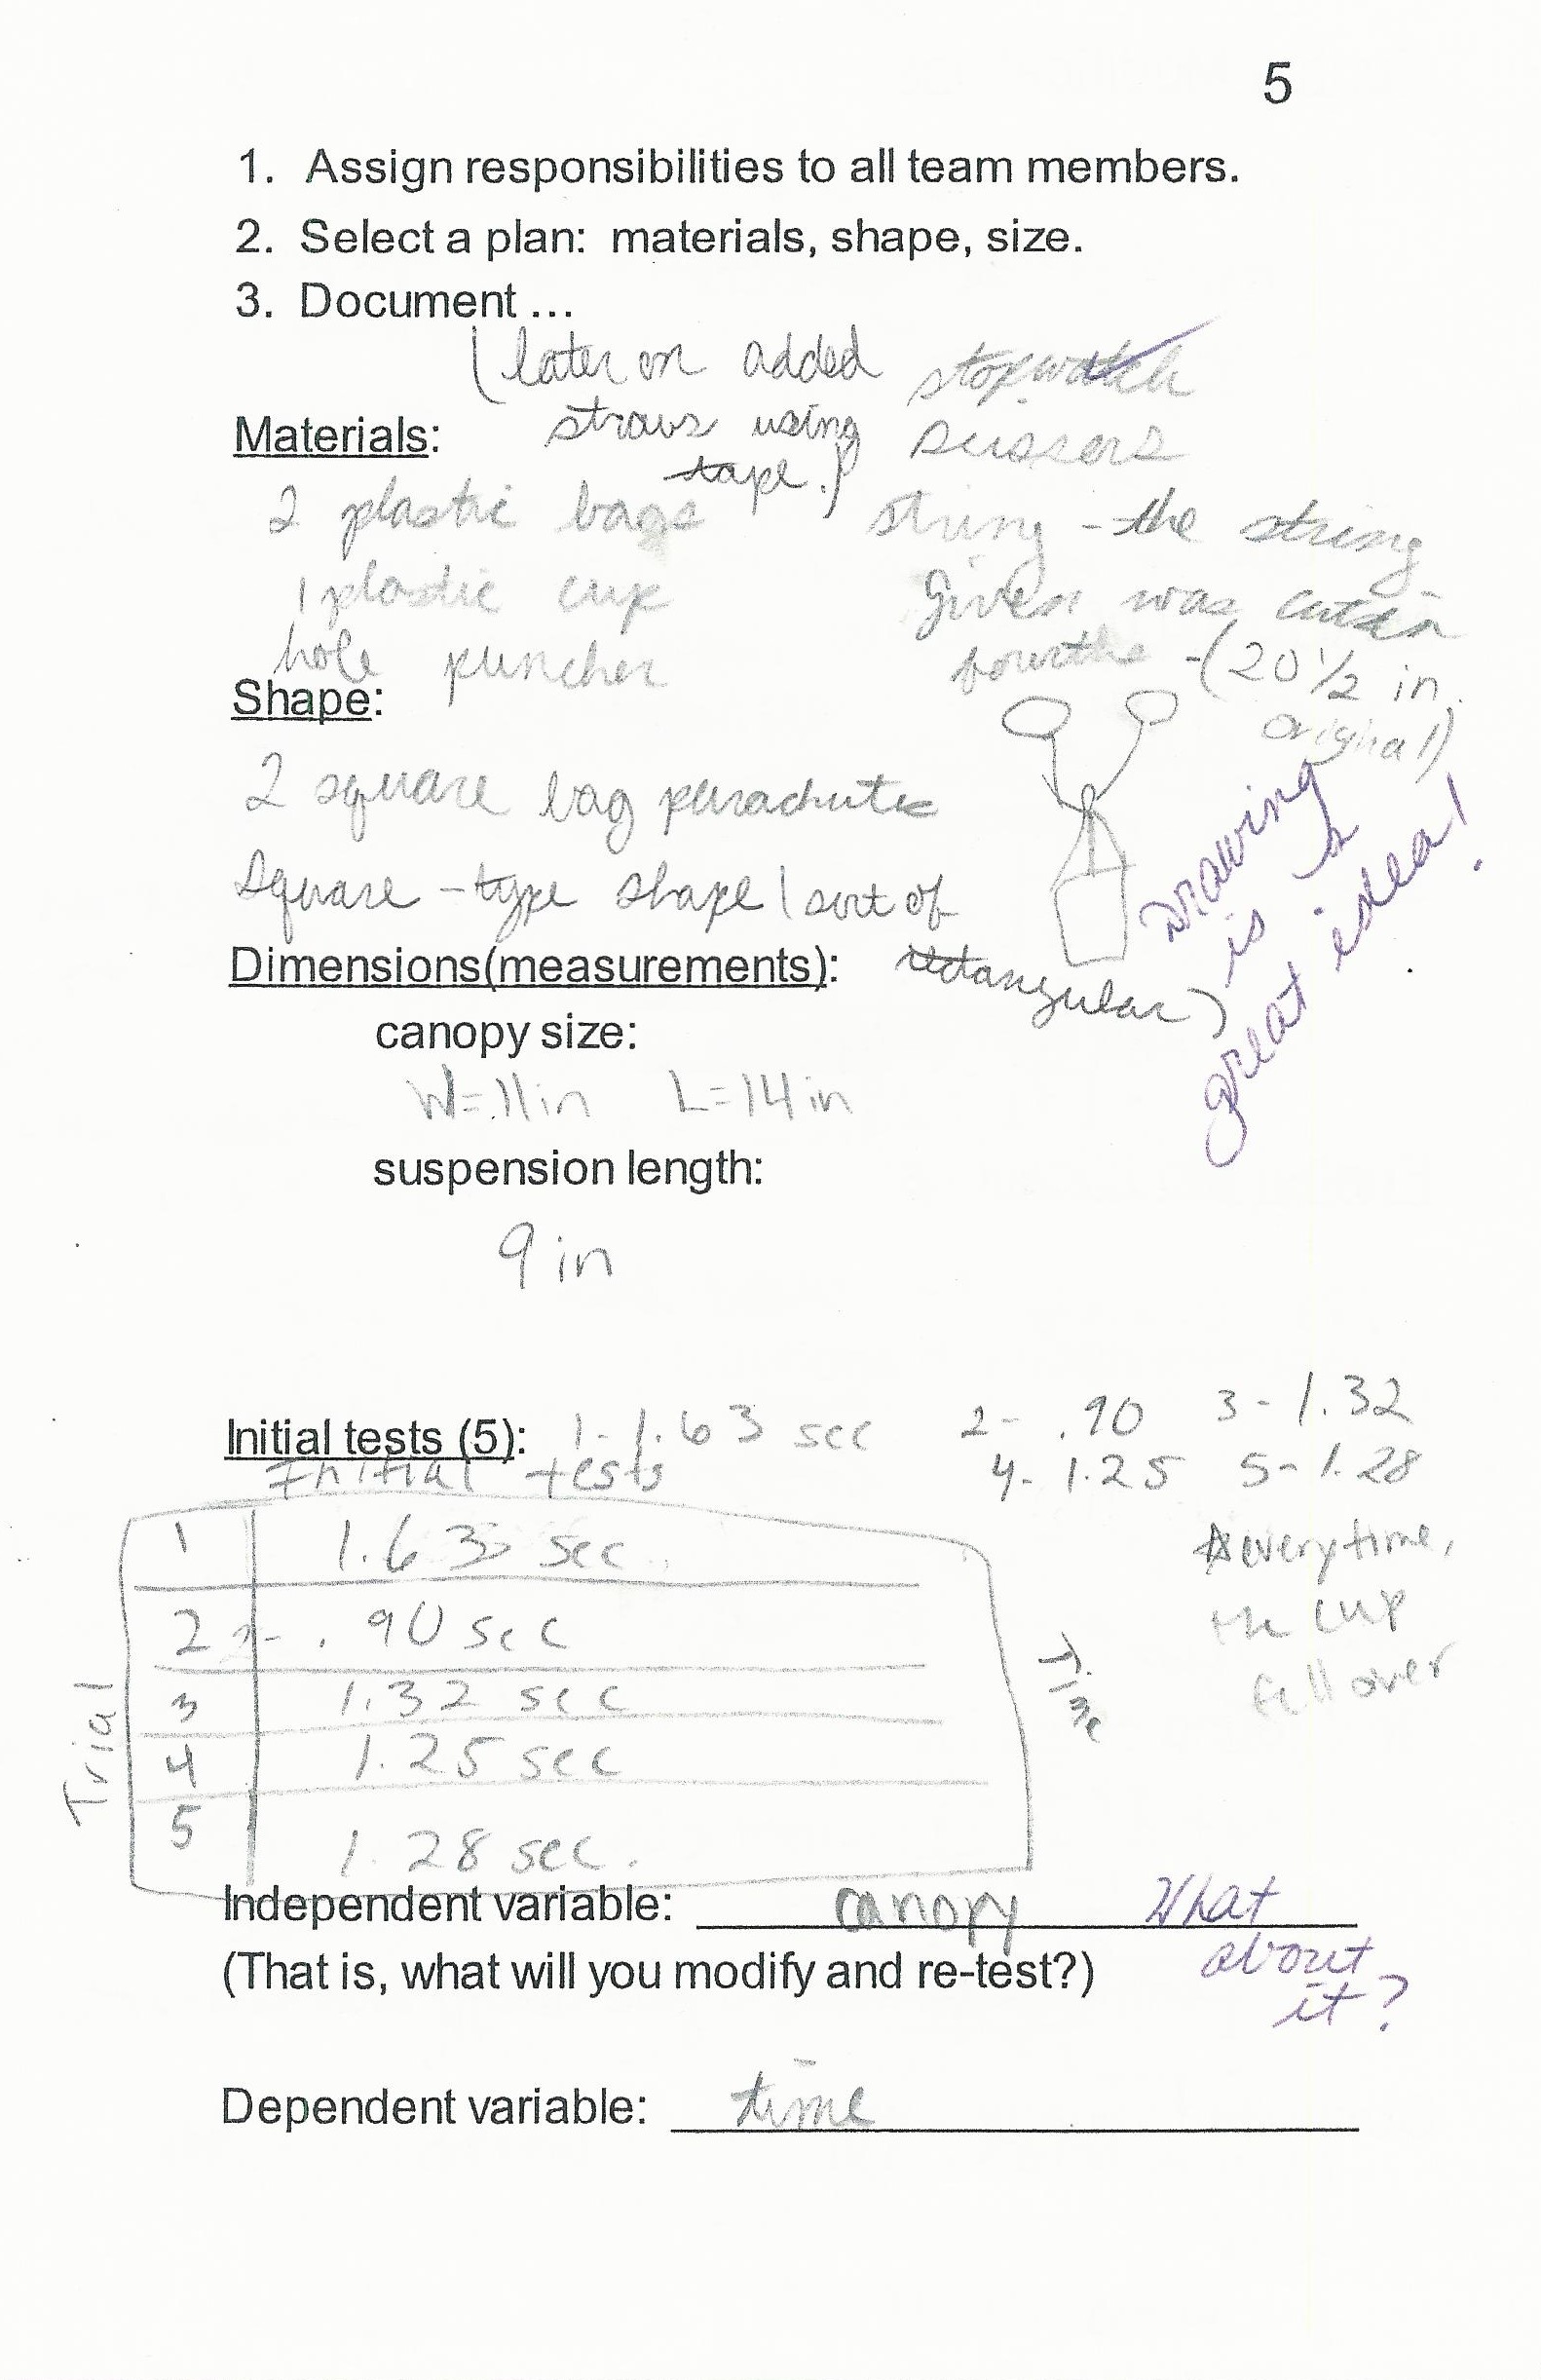 5
1. Assign responsibilities to all team members.
2. Select a plan: materials, shape, size.
3. Document ...
(later on added
straws using
tape.)
stopwatch
scissors
Materials:
2 plastic bags
1 plastic cup
hole puncher
string - the string
given was cut in
fourths - (20 1/2 in.
original)
Shape:
2 square bag parachutes
Square - type shape (sort of
rectangular)
Drawing
is a
great idea!
Dimensions(measurements):
canopy size:
W=11in L=14in
suspension length:
9 in
Initial tests (5): 1- 1.63 sec 2- .90 3- 1.32
4- 1.25 5- 1.28
Initial tests
Trial
Time
1 1.63 sec
2 2- .90 sec
3 1.32 sec
4 1.25 sec
5 1.28 sec.
everytime,
the cup
fell over
Independent variable: canopy
What
about
it?
(That is, what will you modify and re-test?)
Dependent variable: time